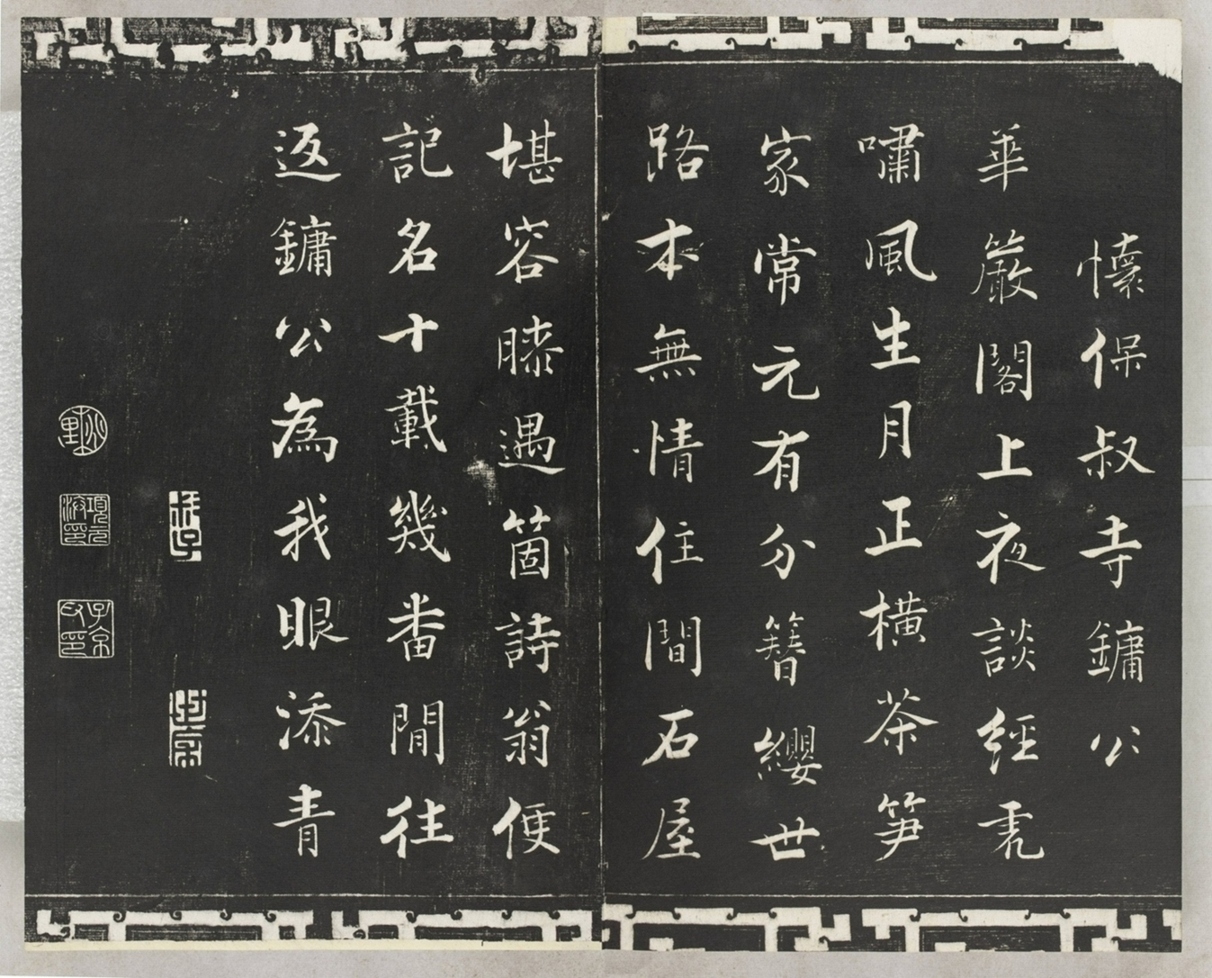 懷保叔寺鏞公
華嚴閣上夜談經虎
嘯風生月正橫茶筍
家常元有分簪纓世
路本無情住間石屋
堪容膝遇箇詩翁便
記名十載幾番閒往
返鏞公為我眼添青
項元汴印
子京